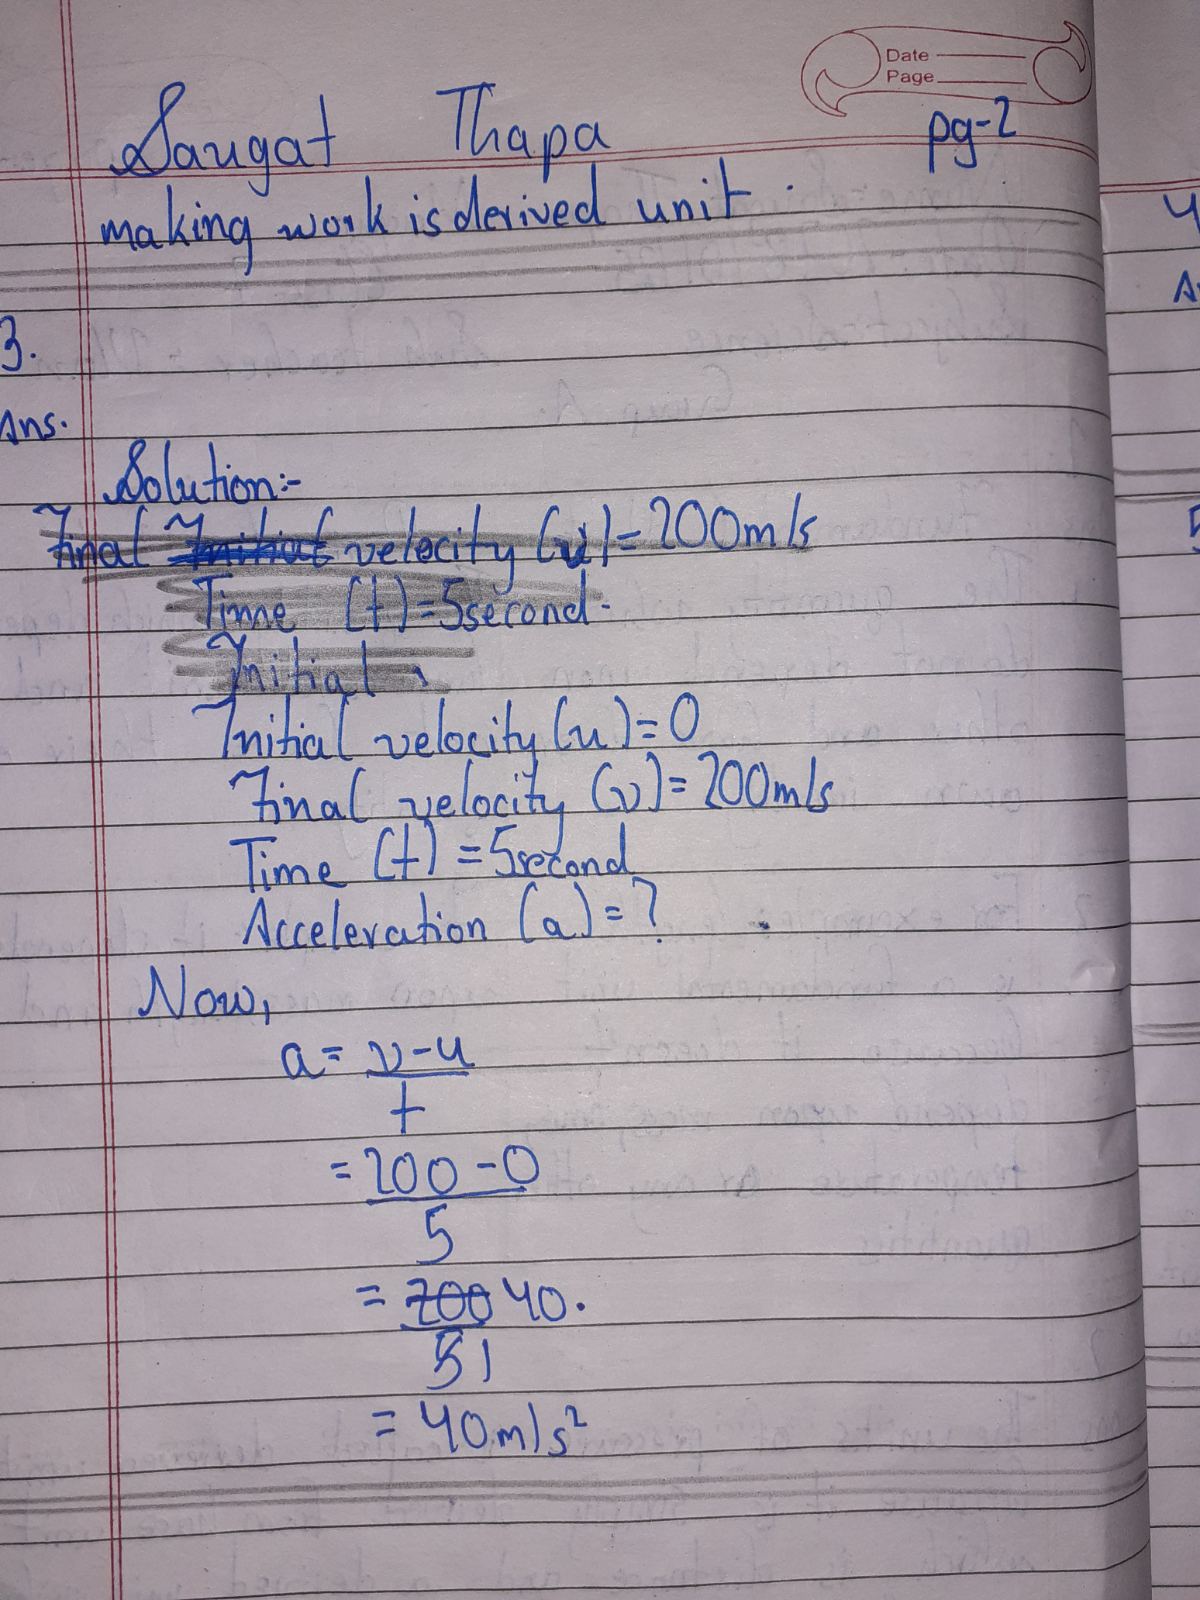 Date
Page
Saugat Thapa
pg-2
making work is derived unit.
3.
Ans.
Solution:-
Final Initial velocity (u) = 200m/s
Time (t) = 5second.
Initial
Initial velocity (u) = 0
Final velocity (v) = 200m/s
Time (t) = 5second
Acceleration (a) = ?
Now,
a = v-u
t
= 200 - 0
5
= 200 40.
5 1
= 40m/s²